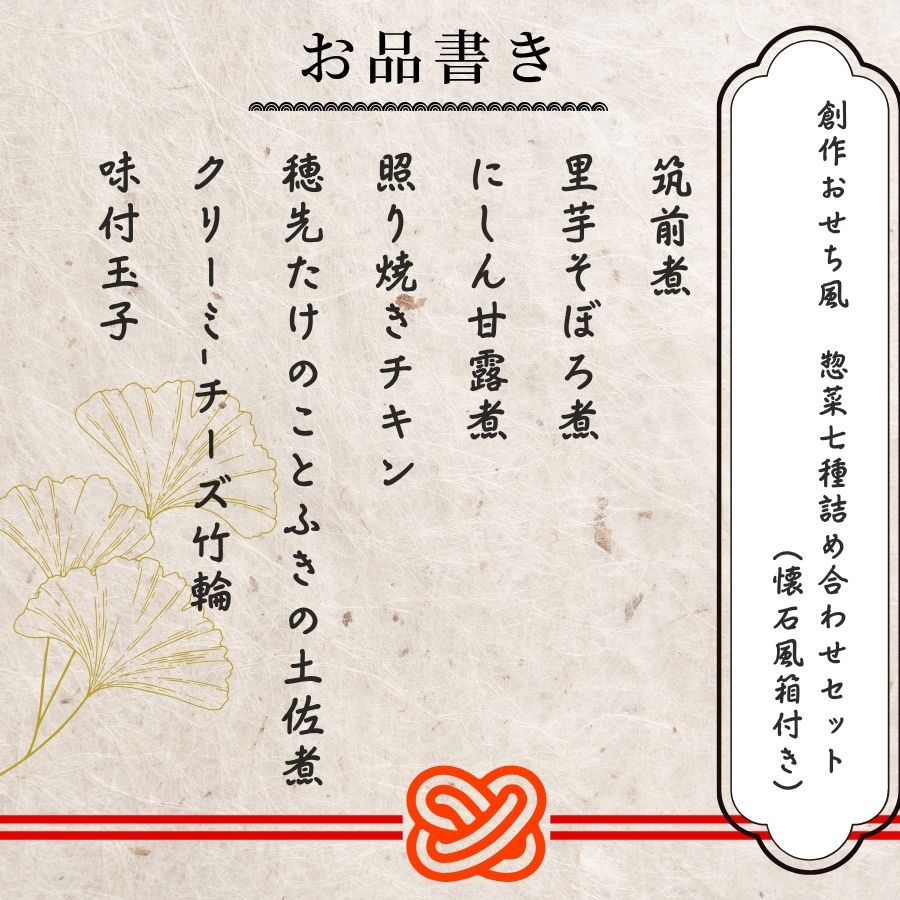 お品書き
創作おせち風　惣菜七種詰め合わせセット
（懐石風箱付き）
筑前煮
里芋そぼろ煮
にしん甘露煮
照り焼きチキン
穂先たけのことふきの土佐煮
クリーミーチーズ竹輪
味付玉子